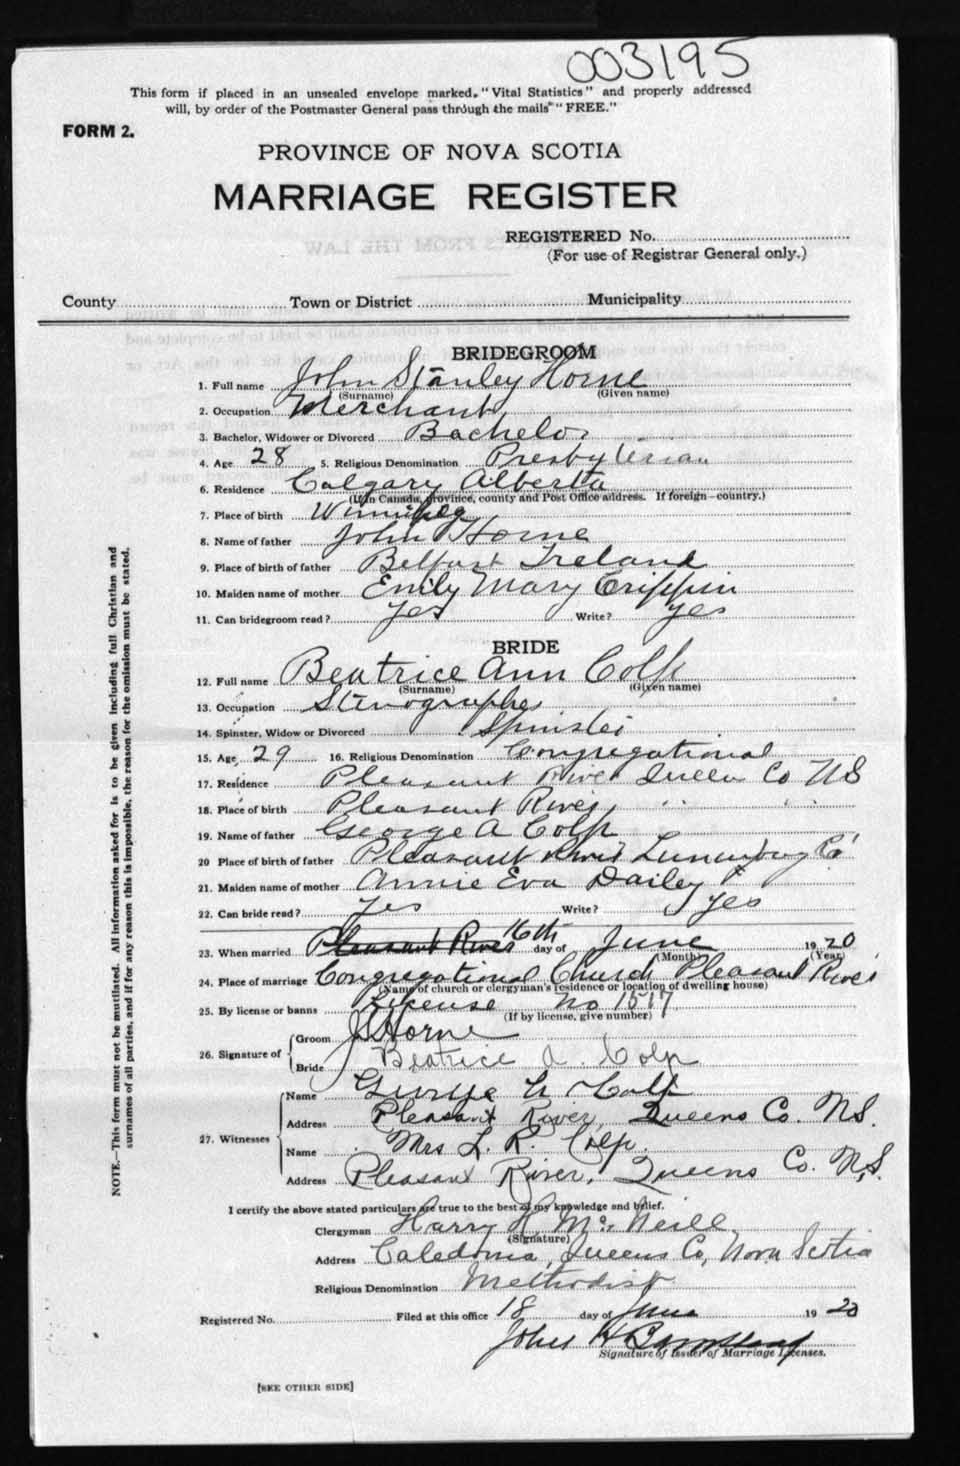 003195
This form if placed in an unsealed envelope marked, "Vital Statistics" and properly addressed
will, by order of the Postmaster General pass through the mails "FREE."
FORM 2.
PROVINCE OF NOVA SCOTIA
MARRIAGE REGISTER
REGISTERED No.
(For use of Registrar General only.)
County Town or District Municipality
BRIDEGROOM
1. Full name John Stanley Horne
(Surname) (Given name)
2. Occupation Merchant
3. Bachelor, Widower or Divorced Bachelor
4. Age 28 5. Religious Denomination Presbyterian
6. Residence Calgary Alberta
(If in Canada, province, county and Post Office address. If foreign—country.)
7. Place of birth Winnipeg
8. Name of father John Horne
9. Place of birth of father Belfast Ireland
10. Maiden name of mother Emily Mary Crippin
11. Can bridegroom read? yes Write? yes
BRIDE
12. Full name Beatrice Ann Colp
(Surname) (Given name)
13. Occupation Stenographer
14. Spinster, Widow or Divorced Spinster
15. Age 29 16. Religious Denomination Congregational
17. Residence Pleasant River Queens Co NS
18. Place of birth Pleasant River " "
19. Name of father George A Colp
20 Place of birth of father Pleasant River Lunenburg Co
21. Maiden name of mother Annie Eva Dailey
22. Can bride read? yes Write? yes
23. When married Pleasant River 16th day of June 1920
(Month) (Year)
24. Place of marriage Congregational Church Pleasant River
(Name of church or clergyman's residence or location of dwelling house)
25. By license or banns License No 1517
(If by license, give number)
26. Signature of Groom J S Horne
Bride Beatrice A. Colp
27. Witnesses Name George A Colp
Address Pleasant River, Queens Co. N.S.
Name Mrs L. R. Colp.
Address Pleasant River, Queens Co. N.S.
I certify the above stated particulars are true to the best of my knowledge and belief.
Clergyman Harry R McNeill
(Signature)
Address Caledonia, Queens Co, Nova Scotia
Religious Denomination Methodist
Registered No. Filed at this office 18 day of June 1920
John H
Signature of Issuer of Marriage Licenses.
[SEE OTHER SIDE]
NOTE.—This form must not be mutilated. All information asked for is to be given including full Christian and
surnames of all parties, and if for any reason this is impossible, the reason for the omission must be stated.